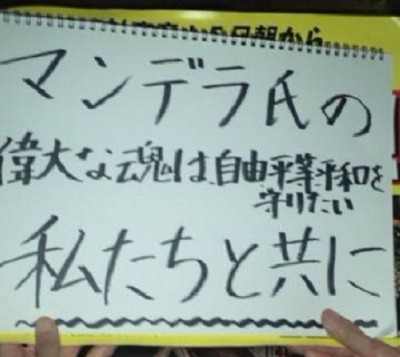 マンデラ氏の
偉大な魂は自由平等平和を
守りたい
私たちと共に